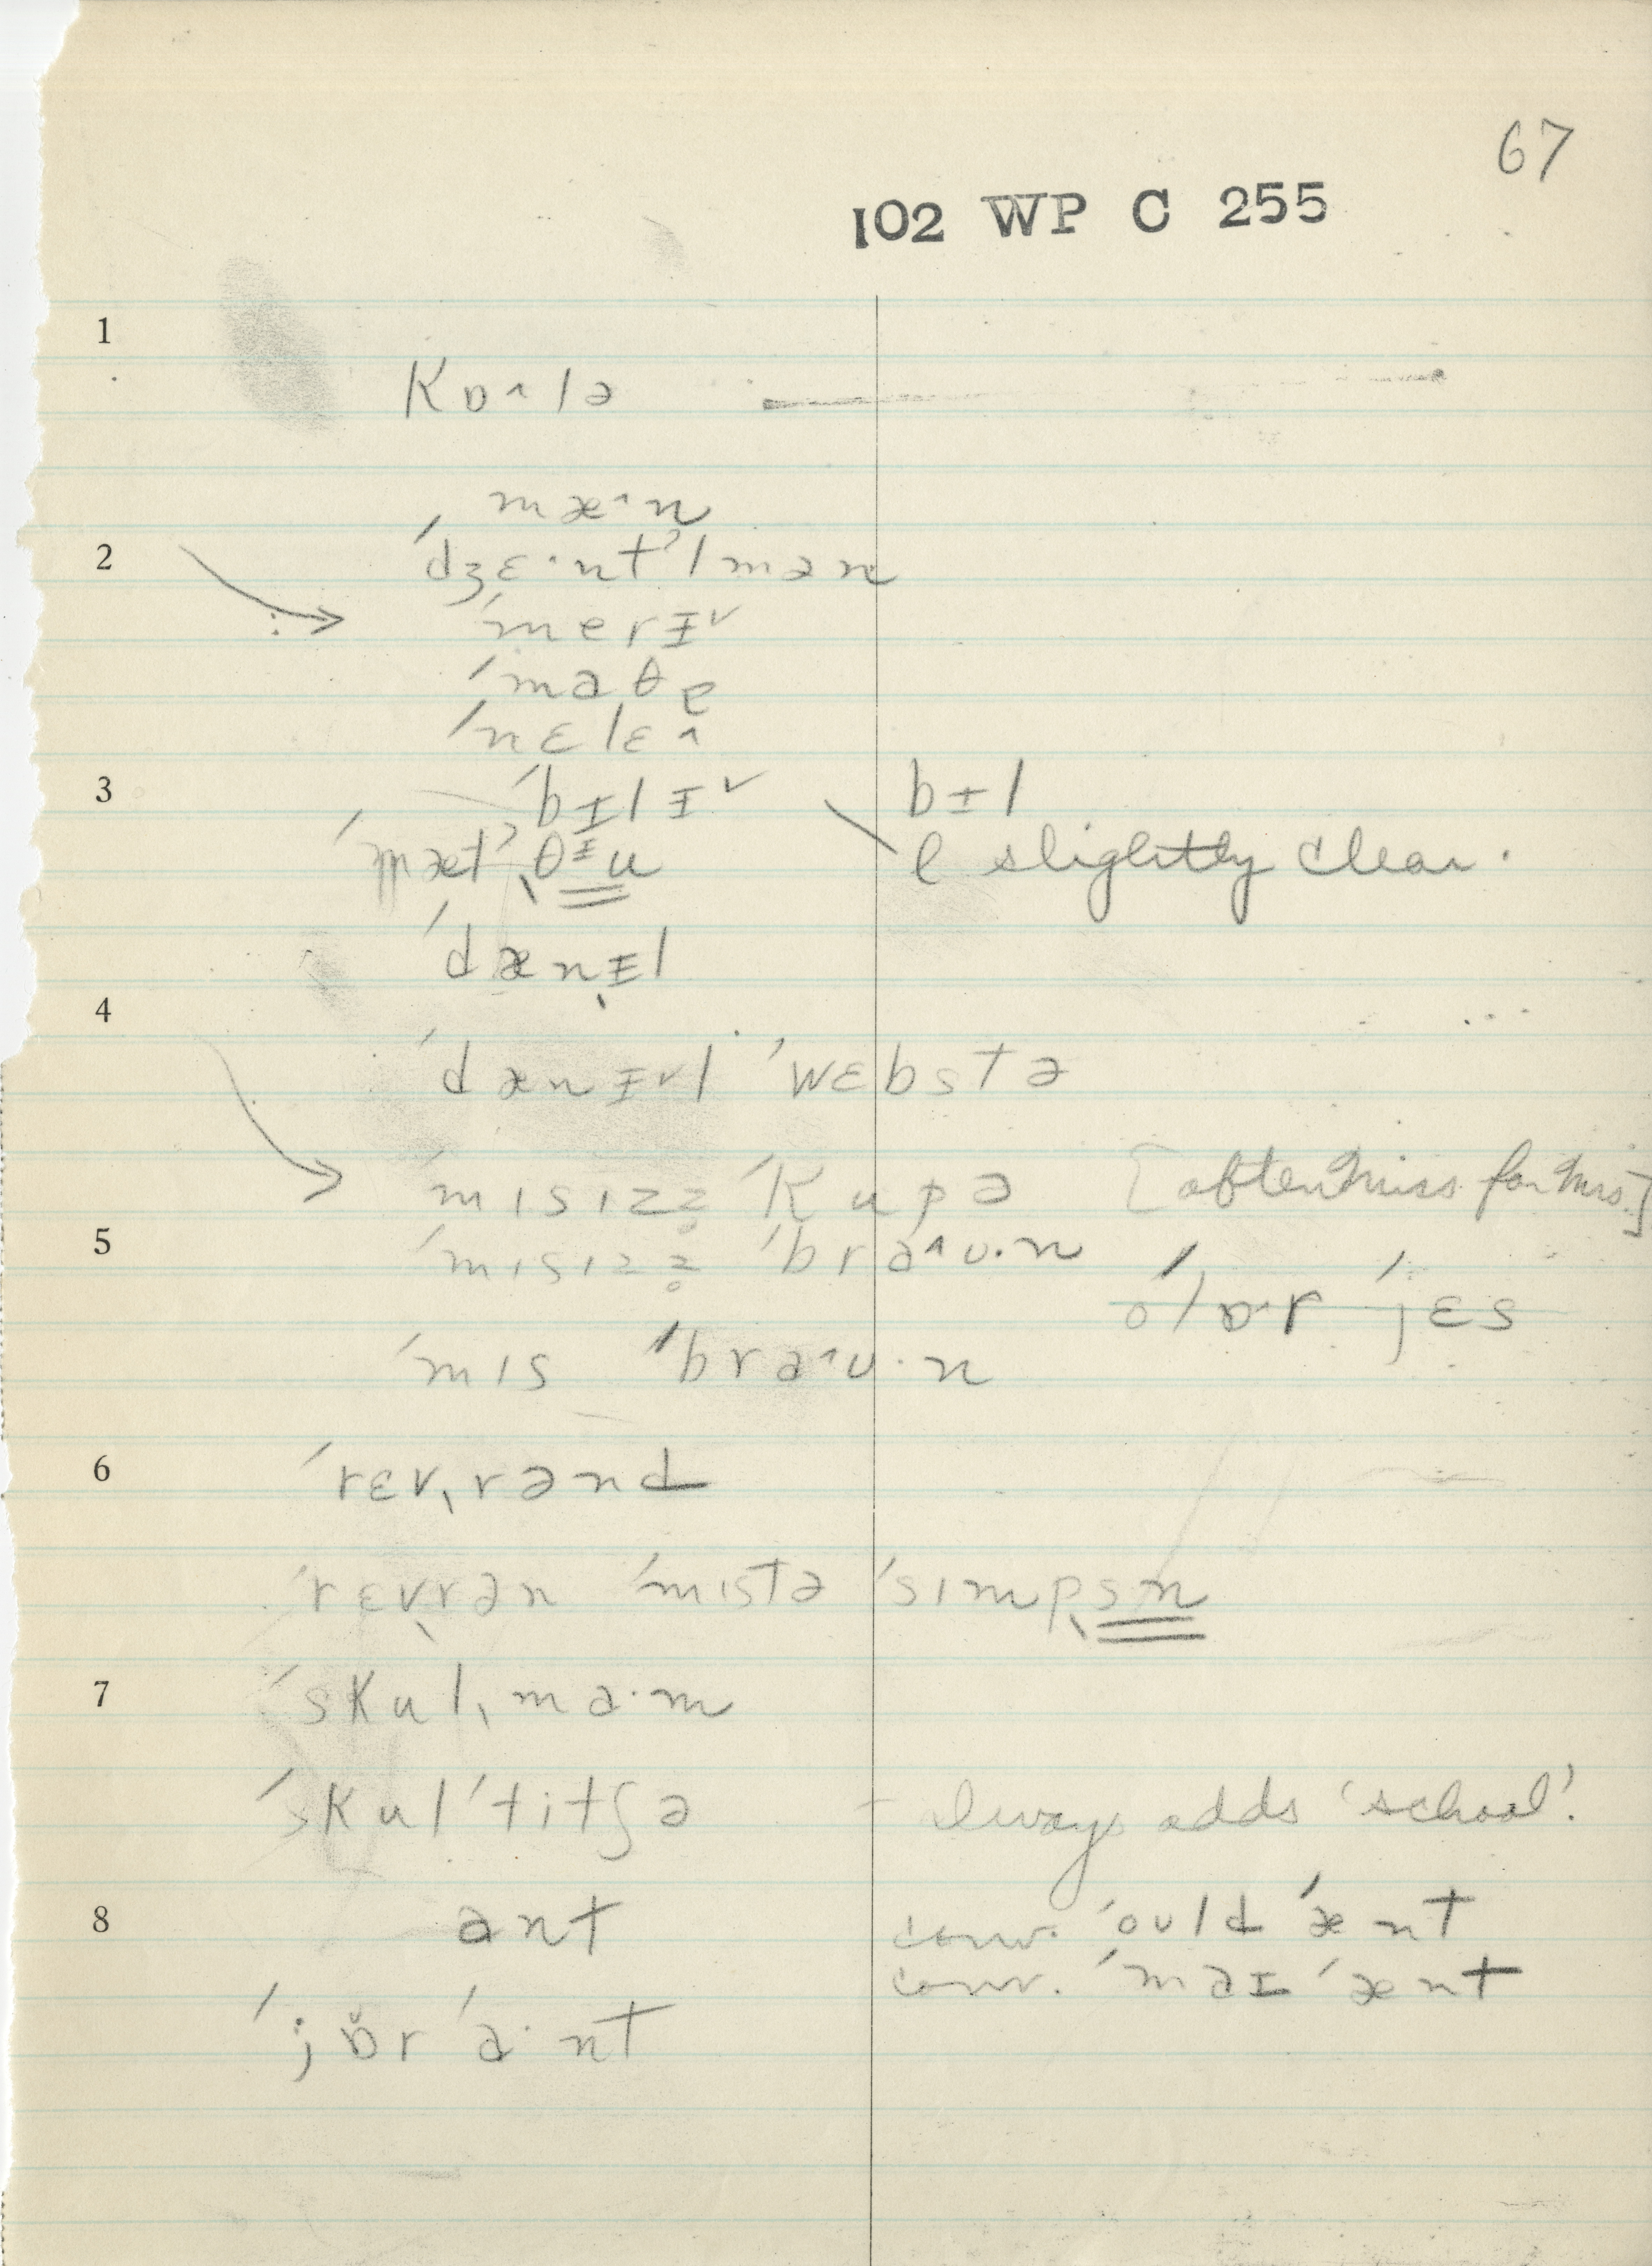 67
102 WP C 255
1
kɒ˄lə
mæ˄n
2
ˈdʒɛ·ntˀlmən
ˈmerɨ˅
ˈmaθə
ˈnɛlɛ˄
3
ˈbɨlɨ˅ bɨl
ˈmætˀˌθᵻu l slightly clear.
ˈdænˌɨl
4
ˈdænɨ˅l ˈwɛbstə
ˈmɪsɪzz̥ ˈkupə [often Miss for Mrs.]
5
ˈmɪsɪzz̥ ˈbra˄ʊ·n
oˈlɒ·r ˈjɛs
ˈmɪs ˈbra˄ʊ·n
6
ˈrɛvˌrənd
ˈrɛvˌrən ˈmɪstə ˈsɪmpˌsn
7
ˈskulˌma·m
ˈskulˈtitʃə – always adds ‘school’.
8
ant conv. ˈoʊld ˈænt
conv. ˈmaɪ ˈænt
ˈjɒ˅r ˈa·nt